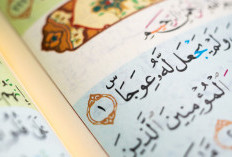 وَلَمْ يَجْعَل لَّهُۥ عِوَجَاۜ ١
ٱلْمُؤْمِنِينَ ٱلَّذِينَ